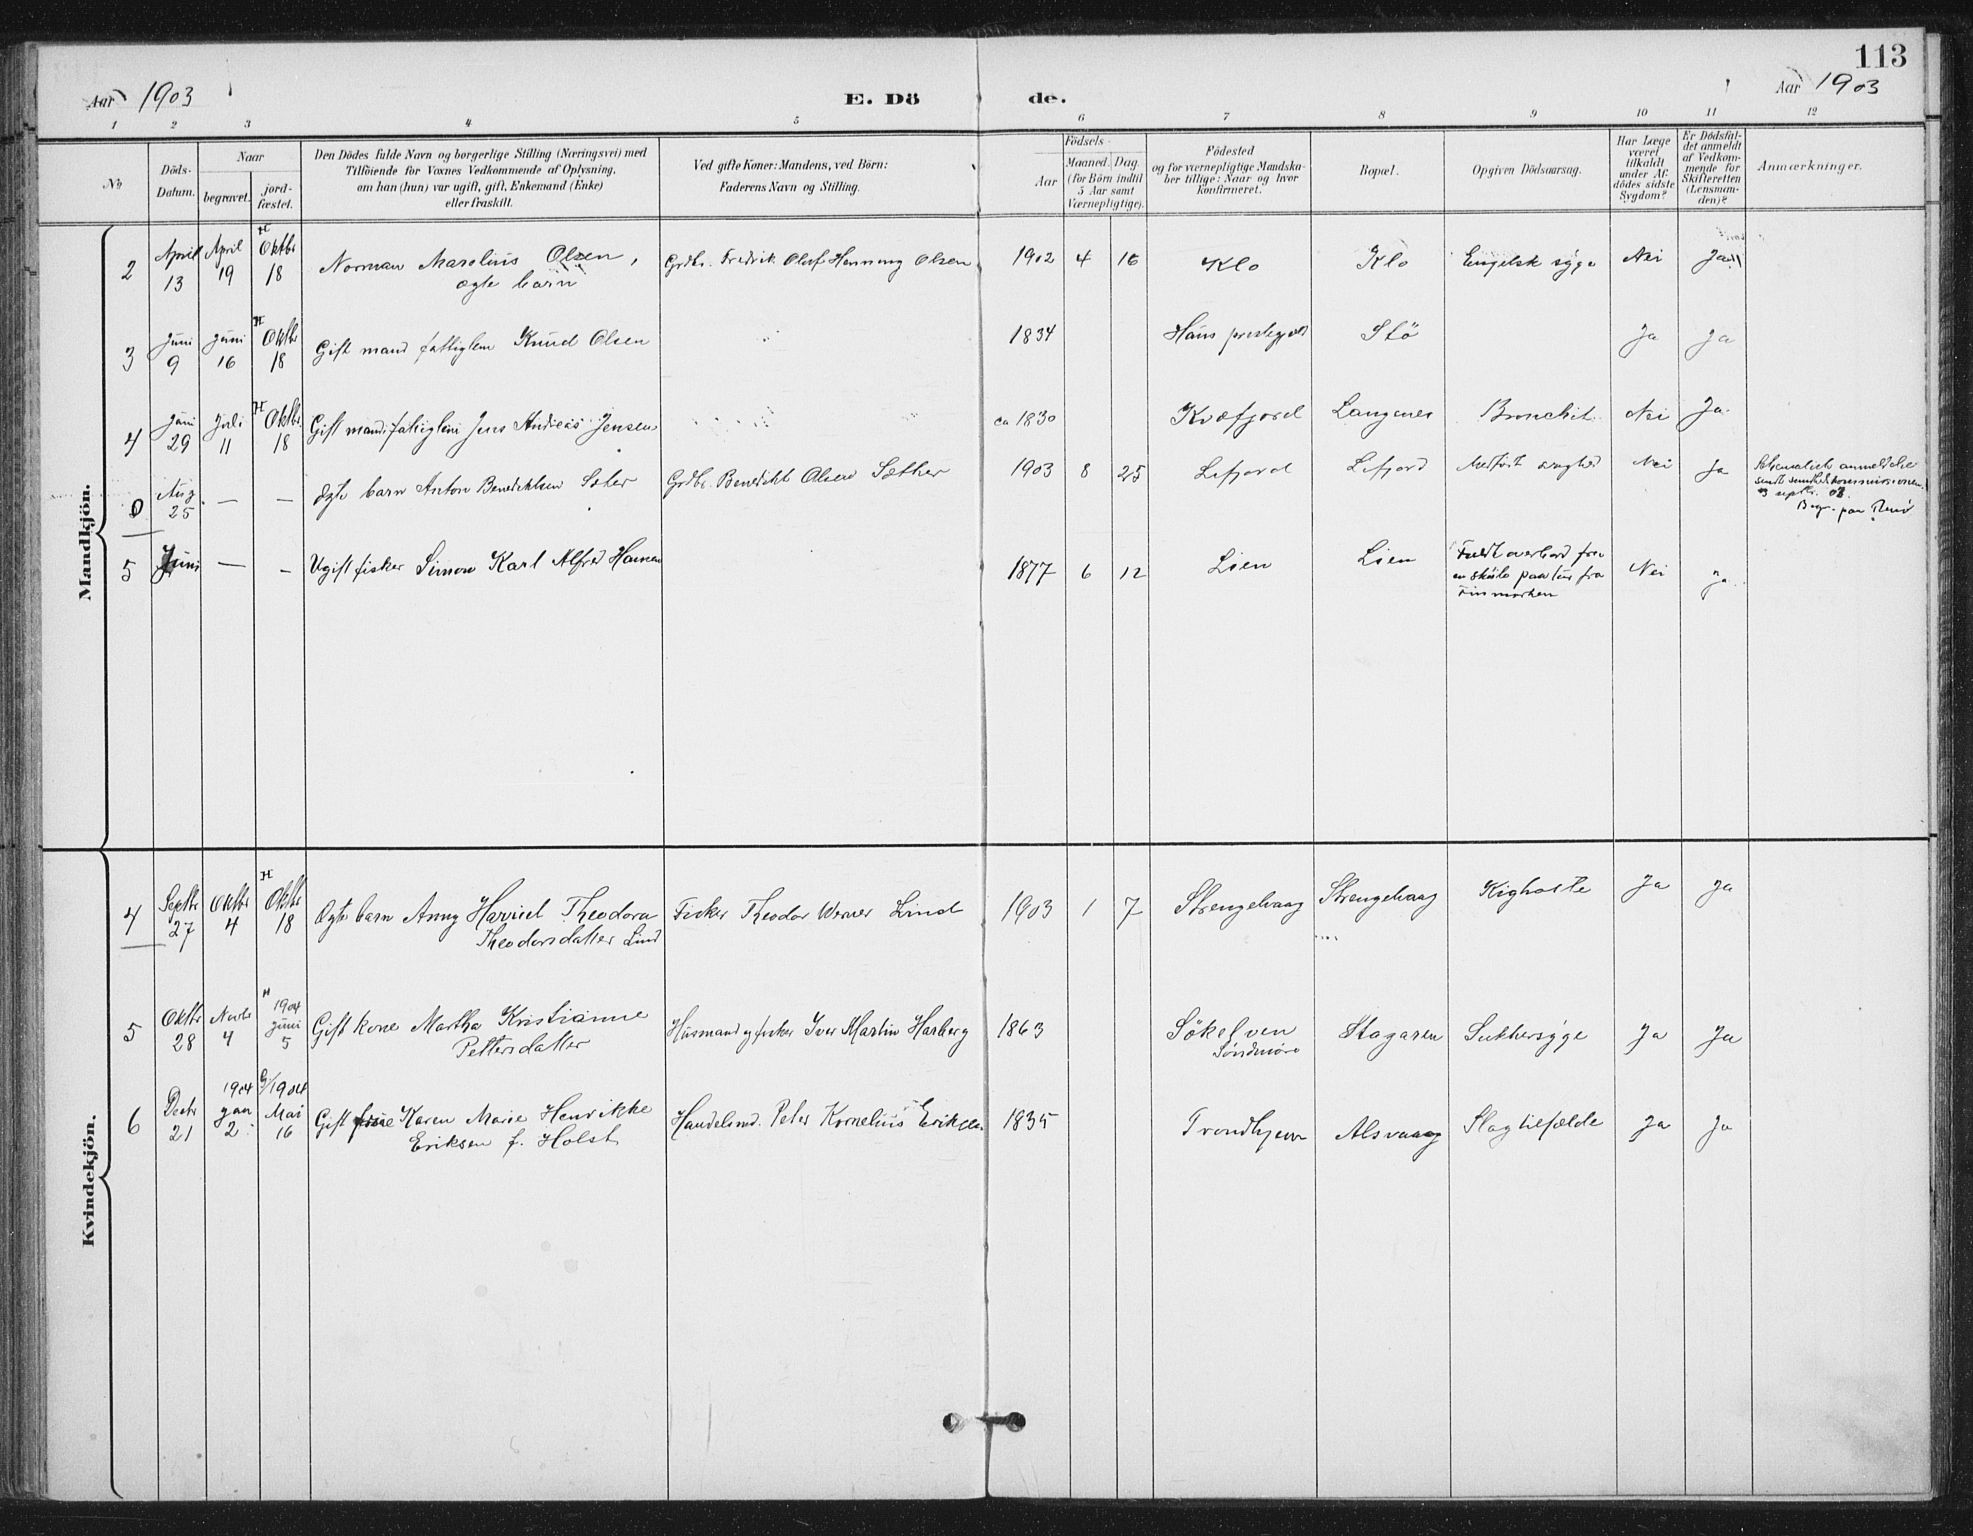 113
Aar 1903
E. Dö de.
Aar 1903
1 2 3 4 5 6 7 8 9 10 11 12
No.
Döds-
Datum.
Naar
begravet.
jord-
fæstet.
Den Dödes fulde Navn og borgerlige Stilling (Næringsvei) med
Tilföiende for Voxnes Vedkommende af Oplysning,
om han (hun) var ugift, gift, Enkemand (Enke)
eller fraskilt.
Ved gifte Koner: Mandens, ved Börn:
Faderens Navn og Stilling.
Födsels-
Aar
Maaned. Dag.
(for Börn indtil
5 Aar samt
Værnepligtige).
Födested
og for værnepligtige Mandska-
ber tillige: Naar og hvor
konfirmeret.
Bopæl.
Opgiven Dödsaarsag.
Har Læge
været
tilkaldt
under Af-
dödes sidste
Sygdom?
Er Dödsfal-
det anmeldt
af Vedkom-
mende for
Skifteretten
(Lensman-
den)?
Anmærkninger.
Mandkjön.
2 April 13 April 19 H Oktbr 18 Norman Marelius Olsen, Grdbr. Fredrik Oluf Henning Olsen 1902 4 16 Klo Klo Engelsk syge Nei Ja
ægte barn
3 Juni 9 Juni 16 H Oktbr 18 Gift mand fattiglem Knud Olsen 1834 Stö Ja Ja
4 Juni 29 Juli 11 H Oktbr. 18 Gift mand fattiglem Jens Andreas Jensen ca 1830 Kvæfjord Langenes Bronchit Nei Ja
0 Aug. 25 — — ægte barn Anton Benediktsen Sæter Grdbr. Benedikt Olsen Sæther 1903 8 25 Lifjord Lifjord Medfödt svaghed Nei Ja
5 Juni — — Ugift fisker Simon Karl Alfred Hansen 1877 6 12 Lien Lien Faldt overbord fra
en skøite paa tur fra
Finmarken Nei Ja.
Kvindekjön.
4 Septbr 27 Oktbr 4 H Oktbr 18 Ægte barn Anny Theodora Fisker Theodor Werner Lind 1903 1 7 Strengelvaag Strengelvaag Kighoste Ja Ja
Theodorsdatter Lind
5 Oktbr 28 Novbr 4 H 1904 Juni 5 Gift kone Martha Kristianne Husmand og fisker Iver Martin Harberg 1863 Sökelven Stagaren Sukkersyge Ja Ja
Pettersdatter Söndmöre
6 Decbr 21 1904 Jan 2 1904 Mai 16 Gift frue Karen Marie Henrikke Handelsmd. Peter Kornelius Eriksen 1835 Trondhjem Alsvaag Slagtilfælde Ja Ja
Eriksen f. Holst